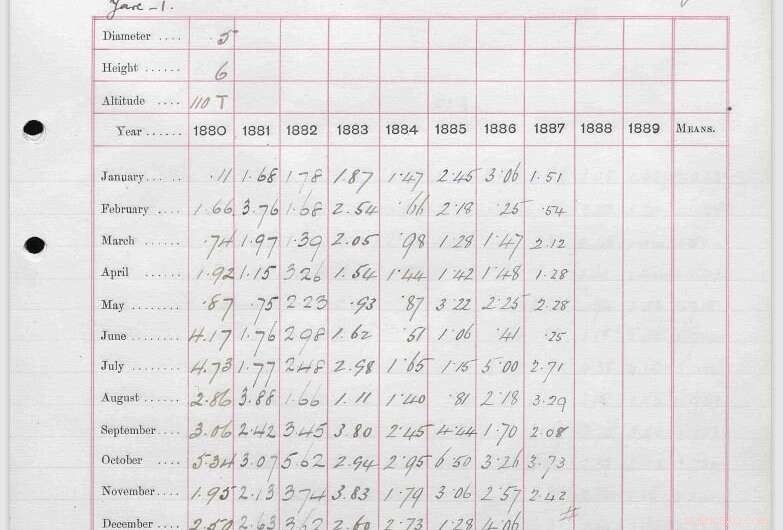 Yare_1.
Diameter .... 5
Height ...... 6
Altitude .... 110 T
Year ...... 1880 1881 1882 1883 1884 1885 1886 1887 1888 1889 MEANS.
January ...... .11 1.68 1.78 1.87 1.47 2.45 3.06 1.51
February .... 1.66 3.76 1.68 2.54 .66 2.18 .25 .54
March ...... .74 1.97 1.39 2.05 .98 1.28 1.47 2.12
April ...... 1.92 1.15 3.26 1.54 1.44 1.42 1.48 1.28
May ........ .87 .75 2.23 .93 .87 3.22 2.25 2.28
June ........ 4.17 1.76 2.98 1.62 .51 1.06 .41 .25
July ........ 4.73 1.77 2.48 2.98 1.65 1.15 5.00 2.71
August ...... 2.86 3.88 1.66 1.11 1.40 .81 2.18 3.29
September .... 3.06 2.42 3.45 3.80 2.45 4.44 1.70 2.08
October .... 5.34 3.07 5.62 2.94 2.95 6.50 3.26 3.73
November .... 1.95 2.13 3.74 3.83 1.79 3.06 2.57 2.42
December .... 2.50 2.63 3.62 2.60 2.73 1.28 4.06